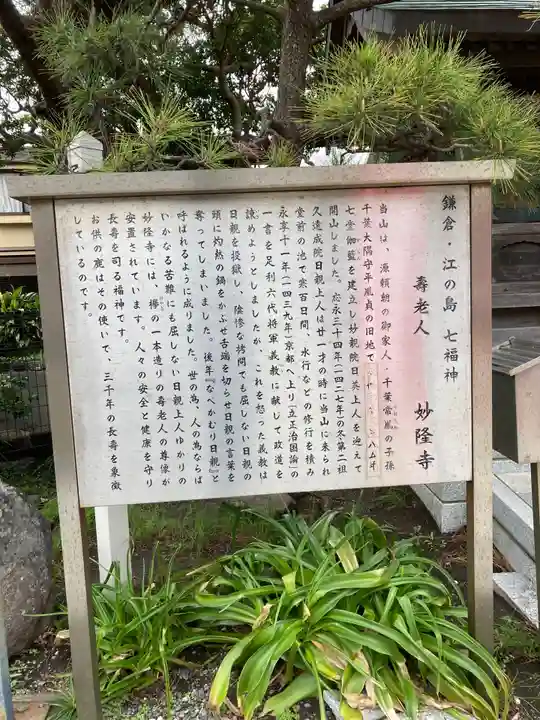 鎌倉・江の島 七福神
壽老人 妙隆寺
当山は、源頼朝の御家人・千葉常胤の子孫
千葉大隅守平胤貞の旧地で
七堂伽藍を建立し妙親院日英上人を迎えて
開山しました。応永三十四年(一四二七年)の冬第二祖
久遠成院日親上人は廿一才の時に当山に来られ
堂前の池で寒百日間、水行などの修行を積み
永享十一年(一四三九年)京都へ上り『立正治国論』の
一言を足利六代将軍義教に献じて政道を
諫めようとしましたが、これを怒った義教は
日親を投獄し、陰惨な拷問でも屈しない日親の
頭に灼熱の鍋をかぶせ舌端を切らせ日親の言葉を
奪ってしまいました。後年『なべかむり日親』と
呼ばれるように成りました。世の為、人の為ならば
いかなる苦難にも屈しない日親上人ゆかりの
妙隆寺には、欅の一本造りの壽老人の尊像が
安置されています。人々の安全と健康を守り
長壽を司る福神です。
お供の鹿はその使いで、三千年の長壽を象徴
しているのです。